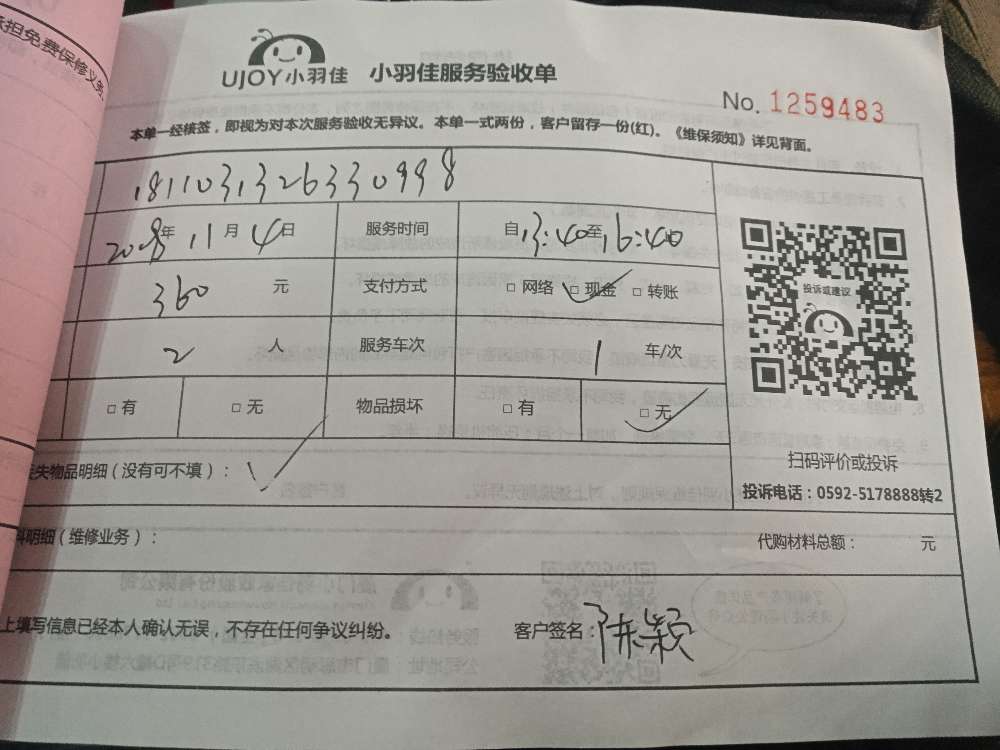 承担免费保修义务
UJOY小羽佳 小羽佳服务验收单
No. 1259483
本单一经核签，即视为对本次服务验收无异议。本单一式两份，客户留存一份(红)。《维保须知》详见背面。
1811031326330998
2018年 11月 4日 服务时间 自13:40至16:40
360 元 支付方式 □ 网络 □ 现金 □ 转账
投诉或建议
2 人 服务车次 1 车/次
□ 有 □ 无 物品损坏 □ 有 □ 无
失物品明细（没有可不填）：
扫码评价或投诉
投诉电话：0592-5178888转2
料明细（维修业务）： 代购材料总额： 元
上填写信息已经本人确认无误，不存在任何争议纠纷。 客户签名：陈颖